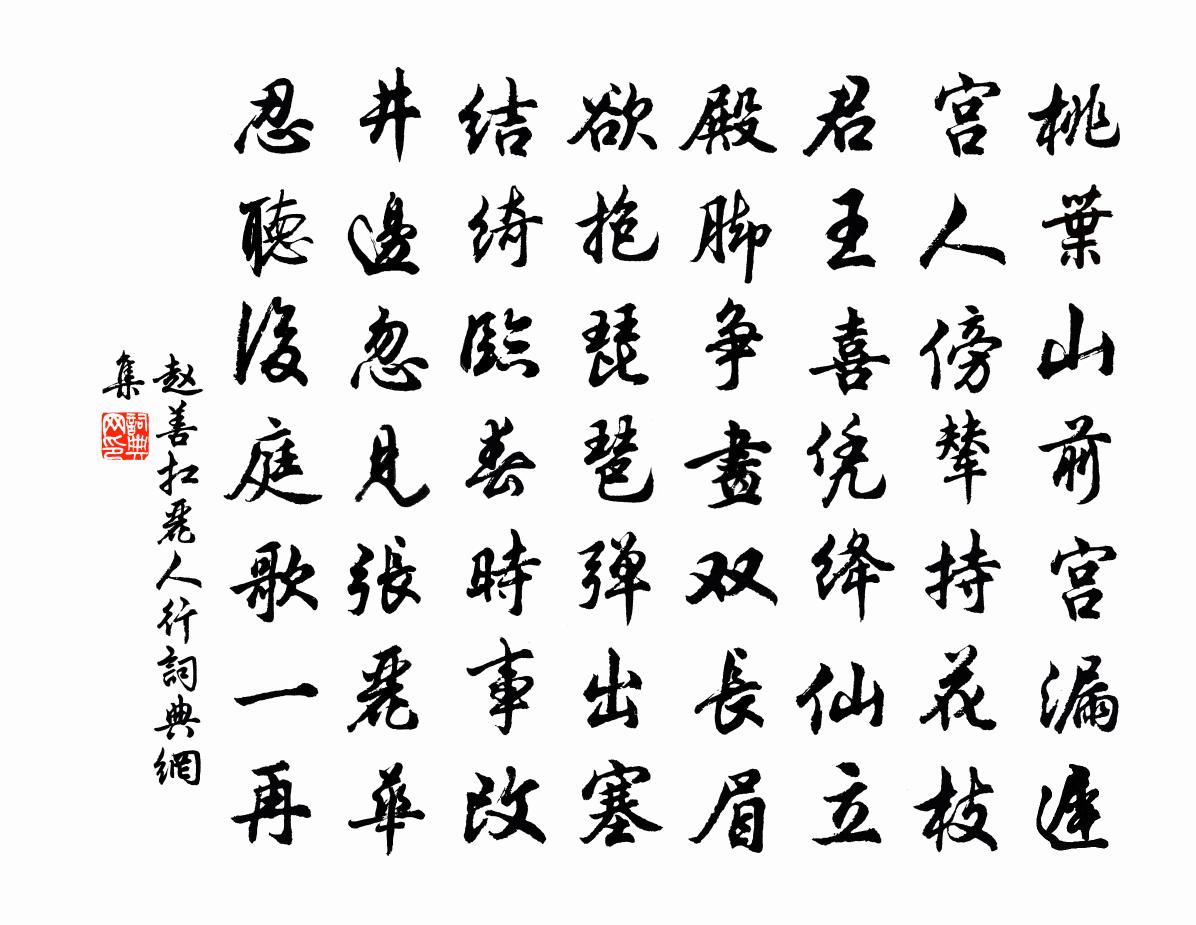 桃葉山前宫漏遲
宫人傍輦持花枝
君王喜凭绛仙立
殿脚争畫双長眉
欲抱琵琶弹出塞
结绮臨春時事改
井邊忽見張麗華
忍聽後庭歌一再
赵善扛麗人行詞典網
集
詞典网印